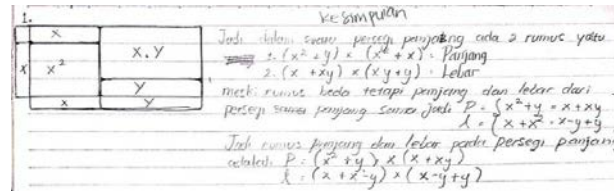 1.
kesimpulan
x
x
x²
x.y
y
x
y
Jadi dalam suatu persegi panjang ada 2 rumus yaitu
1. (x² + y) × (x² + x) = Panjang
2. (x + xy) × (xy + y) = Lebar
meski rumus beda tetapi panjang dan lebar dari
persegi sama panjang sama jadi P = {x² + y = x + xy
l = (x + x² - x - y + y
Jadi rumus panjang dan lebar pada persegi panjang
adalah P = (x² + y) × (x + xy)
l = (x + x² - y) × (x - y + y)